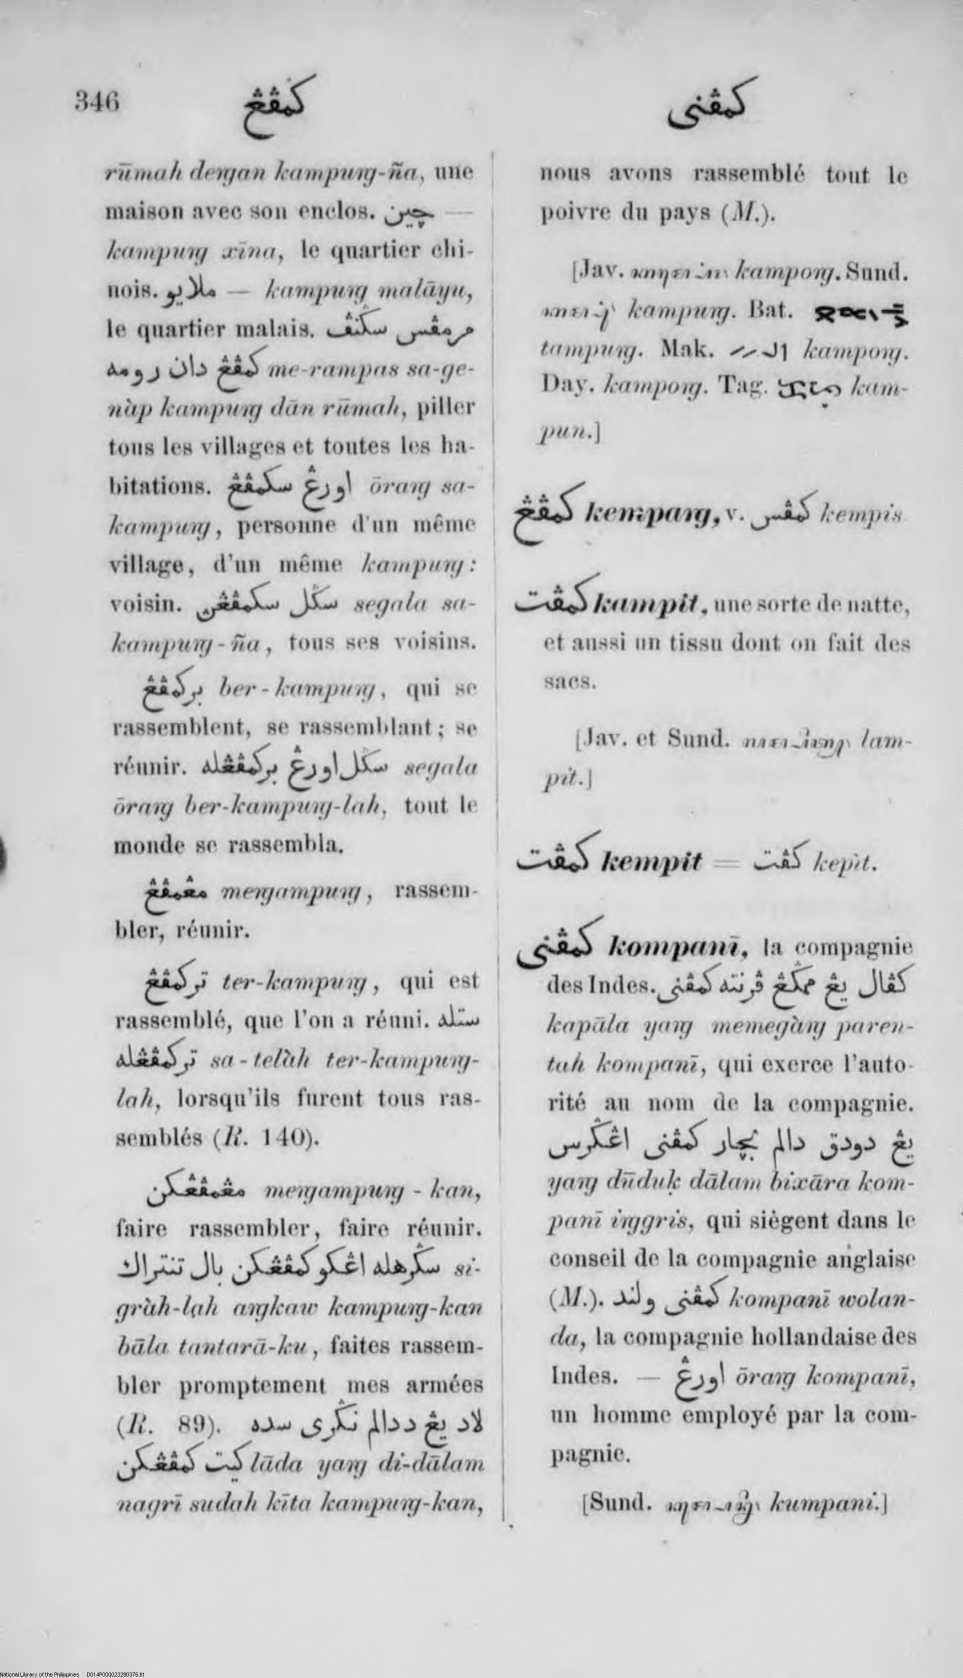 346
كمڤڠ
كمڤنى
rūmah deŋan kampuŋ-ña, une
maison avec son enclos. چين —
kampuŋ xīna, le quartier chi-
nois. ملايو — kampuŋ malāyu,
le quartier malais. مرمڤس سݢنڤ
كمڤڠ دان رومه me-rampas sa-ge-
nàp kampuŋ dān rūmah, piller
tous les villages et toutes les ha-
bitations. اورڠ سكمڤڠ ōraŋ sa-
kampuŋ, personne d'un même
village, d'un même kampuŋ:
voisin. سݢل سكمڤڠن segala sa-
kampuŋ-ña, tous ses voisins.
بركمڤڠ ber-kampuŋ, qui se
rassemblent, se rassemblant; se
réunir. سݢل اورڠ بركمڤڠله segala
ōraŋ ber-kampuŋ-lah, tout le
monde se rassembla.
مڠمڤڠ meŋampuŋ, rassem-
bler, réunir.
تركمڤڠ ter-kampuŋ, qui est
rassemblé, que l'on a réuni. ستله
تركمڤڠله sa-telàh ter-kampuŋ-
lah, lorsqu'ils furent tous ras-
semblés (R. 140).
مڠمڤڠكن meŋampuŋ-kan,
faire rassembler, faire réunir.
سݢرهله اڠكو كمڤڠكن بال تنتراك si-
gràh-lah aŋkaw kampuŋ-kan
bāla tantarā-ku, faites rassem-
bler promptement mes armées
(R. 89). لاد يڠ ددالم نݢرى سده
كيت كمڤڠكن lāda yaŋ di-dālam
nagrī sudah kīta kampuŋ-kan,
nous avons rassemblé tout le
poivre du pays (M.).
[Jav. kampoŋ. Sund.
kampuŋ. Bat.
tampuŋ. Mak. kampoŋ.
Day. kampoŋ. Tag. kam-
pun.]
كمڤڠ kempaŋ, v. كمڤس kempis
كمڤت kampit, une sorte de natte,
et aussi un tissu dont on fait des
sacs.
[Jav. et Sund. lam-
pit.]
كمڤت kempit = كڤت kepìt.
كمڤنى kompanī, la compagnie
des Indes. كڤال يڠ ممݢڠ ڤرنته كمڤنى
kapāla yaŋ memegàŋ paren-
tah kompanī, qui exerce l'auto-
rité au nom de la compagnie.
يڠ دودق دالم بچار كمڤنى اڠݢرس
yaŋ dūduḳ dālam bixāra kom-
panī iŋgris, qui siègent dans le
conseil de la compagnie anglaise
(M.). كمڤنى ولند kompanī wolan-
da, la compagnie hollandaise des
Indes. — اورڠ ōraŋ kompanī,
un homme employé par la com-
pagnie.
[Sund. kumpani.]
National Library of the Philippines